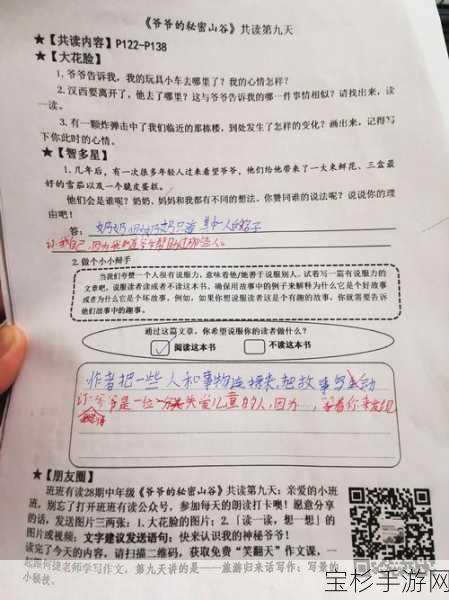 《爷爷的秘密山谷》共读第九天
★【共读内容】P122-P138
★【大花脸】
1. 爷爷告诉我,我的玩具小车去哪里了?我的心情怎样?
2. 汉西要离开了,他去了哪里?这与爷爷告诉我的哪一件事情相似?请找出来,读一读。
3. 有一颗炸弹击中了我们临近的那栋楼,到处发生了怎样的变化?画出来。记得写下你此时的心情。
★【智多星】
1. 几年后,有一次很多年轻人过来看望爷爷,他们给他带来了一大束鲜花、三盒最好的雪茄以及一个脆皮蛋糕。
他们会是谁呢?奶奶、妈妈和我都有不同的想法。你赞同谁的说法呢?说说你的理由吧!
答:奶奶
2. 做个小小辩手
当我们夸赞一个人很有说服力,意味着他/她善于说服别人。试着写一篇有说服力的
文章吧,说服读者读或者不读这本书。确保用故事中的例子来解释为什么它是个好故事
或者为什么它是个坏故事。例如,如果你想说服读者这是个有趣的故事,你就需要告诉
他们故事中的趣事。
通过这篇文章,你希望说服你的读者做什么?
阅读这本书 不读这本书
作者把一些人和事物连接来,把故事写
爷爷是一位 关爱儿童的人,因为,
★【朋友圈】
班班有读28期中年级《爷爷的秘密山谷》共读第九天:亲爱的小班
班,别忘了打开班班有读公众号,参加每天的朗读打卡噢!愿意分享
的话,发送图片三两张:1.大花脸的图片;2.「读一读,想一想」的
图片或视频;文字建议发送语句:快来认识我的神秘爷爷!
读完了今天的内容,请扫描二维码,获取免费“笑翻天”作文课,一
起跟何捷老师学写作文,第九天讲的是——旅游归来话写作:写景的
小秘技。
宝杉手游网